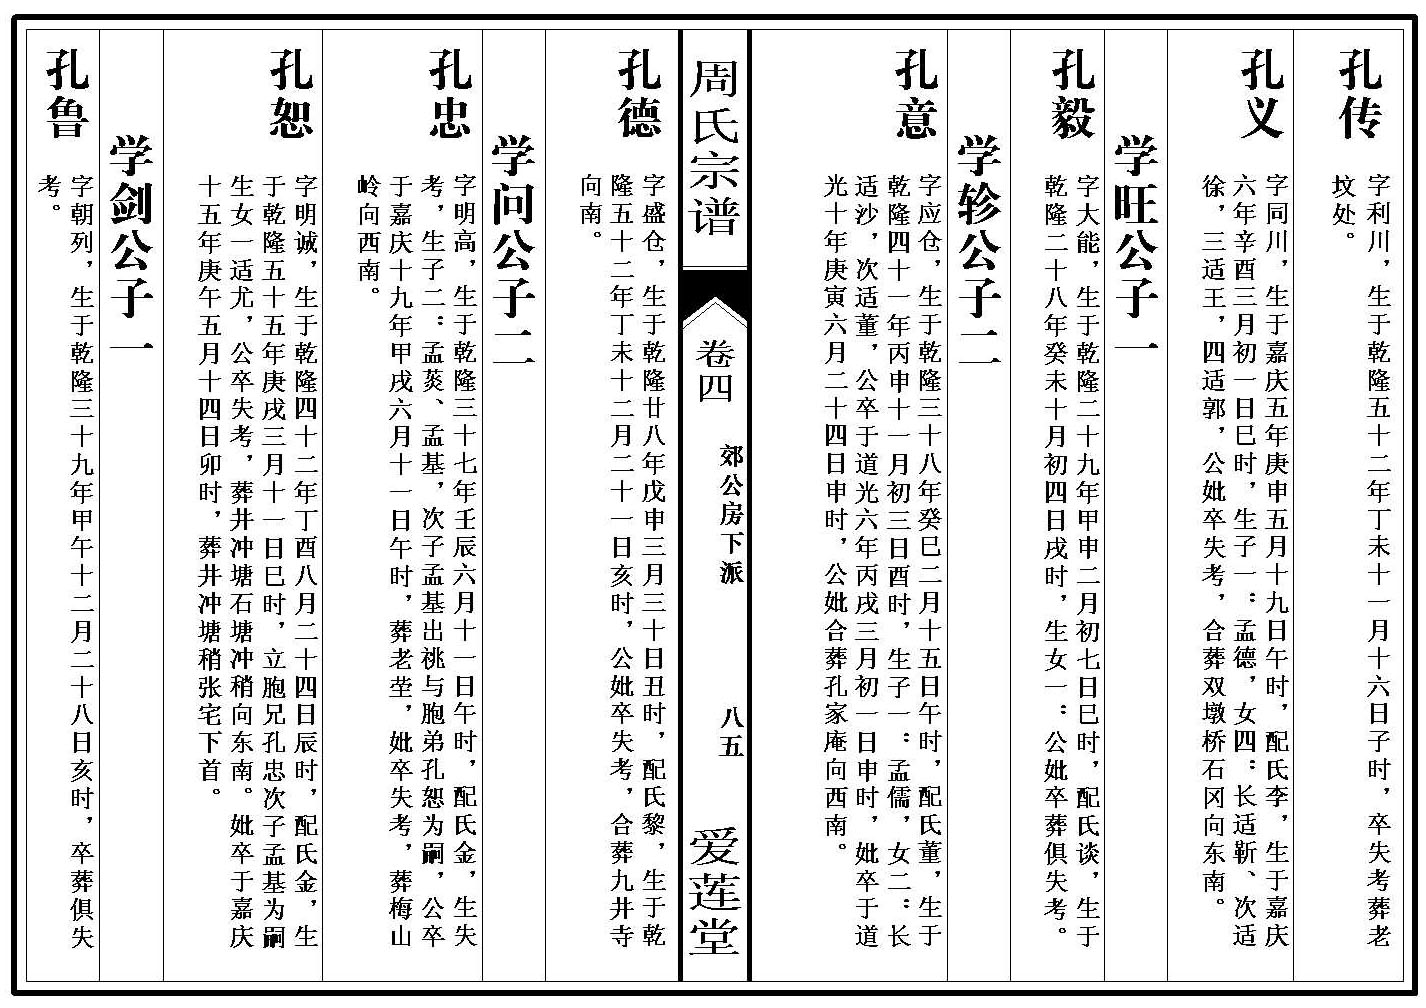 孔传
字利川，生于乾隆五十二年丁未十一月十六日子时，卒失考葬老
坟处。
孔义
字同川，生于嘉庆五年庚申五月十九日午时，配氏李，生于嘉庆
六年辛酉三月初一日巳时，生子一：孟德，女四：长适靳、次适
徐，三适王，四适郭，公妣卒失考，合葬双墩桥石冈向东南。
学旺公子一
孔毅
字大能，生于乾隆二十九年甲申二月初七日巳时，配氏谈，生于
乾隆二十八年癸未十月初四日戌时，生女一：公妣卒葬俱失考。
学轸公子二
孔意
字应仓，生于乾隆三十八年癸巳二月十五日午时，配氏董，生于
乾隆四十一年丙申十一月初三日酉时，生子一：孟儒，女二：长
适沙，次适董，公卒于道光六年丙戌三月初一日申时，妣卒于道
光十年庚寅六月二十四日申时，公妣合葬孔家庵向西南。
周氏宗谱
卷四
郊公房下派
八五
爱莲堂
孔德
字盛仓，生于乾隆廿八年戊申三月三十日丑时，配氏黎，生于乾
隆五十二年丁未十二月二十一日亥时，公妣卒失考，合葬九井寺
向南。
学问公子二
孔忠
字明高，生于乾隆三十七年壬辰六月十一日午时，配氏金，生失
考，生子二：孟菼、孟基，次子孟基出祧与胞弟孔恕为嗣，公卒
于嘉庆十九年甲戌六月十一日午时，葬老茔，妣卒失考，葬梅山
岭向西南。
孔恕
字明诚，生于乾隆四十二年丁酉八月二十四日辰时，配氏金，生
于乾隆五十五年庚戌三月十一日巳时，立胞兄孔忠次子孟基为嗣
生女一适尤，公卒失考，葬井冲塘石塘冲稍向东南。妣卒于嘉庆
十五年庚午五月十四日卯时，葬井冲塘稍张宅下首。
学剑公子一
孔鲁
字朝列，生于乾隆三十九年甲午十二月二十八日亥时，卒葬俱失
考。